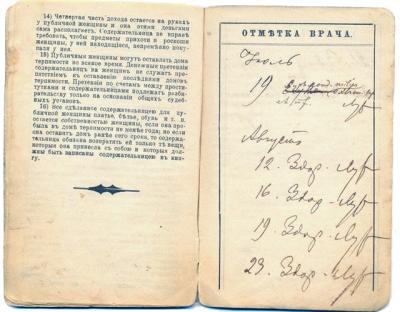 14) Четвертая часть дохода остается на руках
у публичной женщины и она этими деньгами
сама располагаетъ. Содержательница не вправѣ
требовать, чтобы предметы прихоти и роскоши
женщины, у ней находящіяся, непремѣнно поку-
пали у ней.
15) Публичныя женщины могутъ оставлять дома
терпимости во всякое время. Денежныя претензіи
содержательницъ на женщинъ не служатъ пре-
пятствіемъ къ оставленію послѣдними домовъ
терпимости. Претензіи по счетамъ между прос-
титутками и содержательницами подлежатъ разби-
рательству только на основаніи общихъ судеб-
ныхъ уставовъ.
16) Все сдѣланное содержательницею для пу-
бличной женщины платье, бѣлье, обувь и т. п.
остается собственностью женщины, если она про-
была въ домѣ терпимости не менѣе года; но если
она оставитъ домъ ранѣе сего срока, то содержа-
тельница обязана возвратить ей только тѣ вещи,
которыя она принесла съ собою и которыя дол-
жны быть записаны содержательницею въ кни-
гу.
ОТМѢТКА ВРАЧА.
Іюль
19
Августъ
12. Здор.
16. Здор.
19. Здор.
23. Здор.